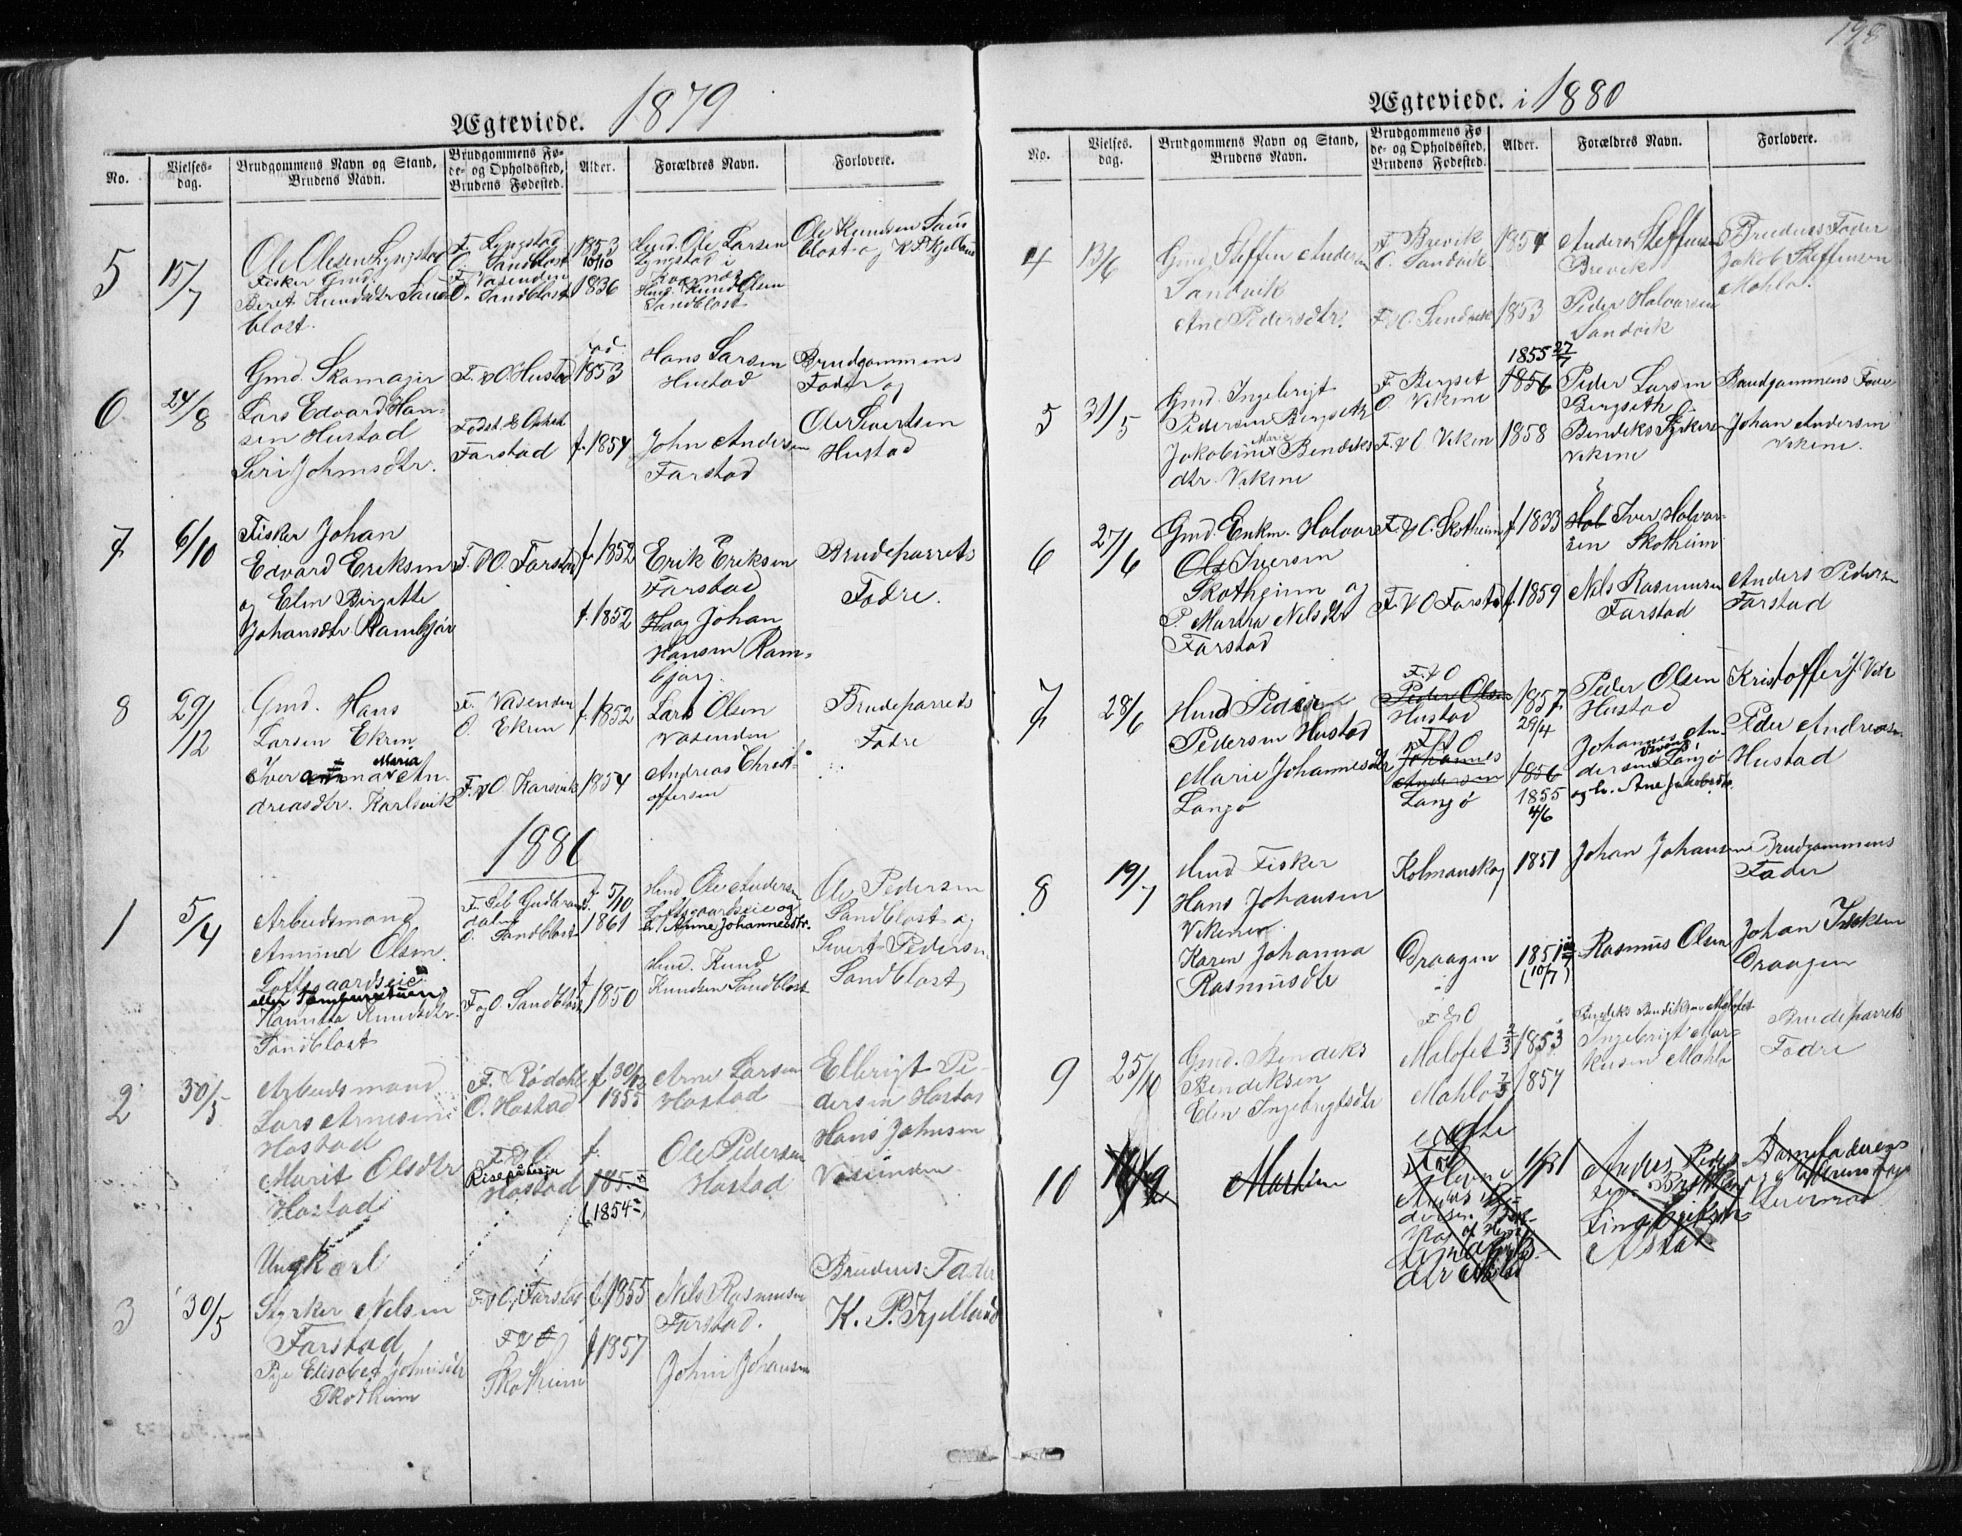 Ægteviede. 1879
No.
Vielses-
dag.
Brudgommens Navn og Stand,
Brudens Navn.
Brudgommens Fø-
de- og Opholdssted,
Brudens Fødested.
Alder.
Forældres Navn.
Forlovere.
5
15/7
Ole Olesen Lyngstad
Fisker Gmd.
Beret Knudsdtr Sand
blost.
F. Lyngstad
O. Sandblost
F. Vasenden
O. Sandblost
1853
10/10
1836
Husd. Ole Larsen
Lyngstad i
Husd. Knud Olsen
Sandblost
Ole Knudsen Sand
blost og K. P. Kjelland
6
24/8
Gmd. Skomager
Lars Edvard Han-
sen Hustad
Siri Johnsdtr.
F. & O. Hustad
Født & Ophst
Farstad
1853
f. 1854
Hans Larsen
Hustad
John Andersen
Farstad
Brudgommens
Fader og
Ole Sivertsen
Hustad
7
6/10
Fisker Johan
Edvard Eriksen
og Elen Birgitte
Johansdtr. Rambjør
F. & O. Farstad
f. 1852
f. 1852
Erik Eriksen
Farstad
Johan
Hansen Ram-
bjørg.
Brudeparrets
Fædre.
8
29/12
Gmd. Hans
Larsen Ekren
Iver anna Maria An-
dreasdtr. Karlsvik
F. Vasenden
O. Ekren
F. & O. Karsvik
f. 1852
1854
Lars Olsen
Vasenden
Andreas Christ-
offersen
Brudeparrets
Fædre
1880
1
5/4
Arbeidsmand
Amund Olsen
Loftsgaardseie
eller Tamburstuen
Knudsdtr.
Sandblost
O. Sandblost
F. og O. Sandblost
f. 5/10
1861
f. 1850
Husd. Ole Andersen
Loftsgaardseie og
h. Anne Johannesdtr.
Husd. Knud
Knudsen Sandblost
Ole Pedersen
Sandblost og
Sivert Pedersen
Sandblost
2
30/5
Arbeidsmand
Lars Arnesen
Hostad
Marit Olsdtr
Hostad
F. Rødahl
O. Hostad
F. & O
Hostad
f. 30/12
1855
f.
1855
(1854)
Arne Larsen
Hostad
Ole Pedersen
Hostad
Elbrigt Pe-
dersen Hostad
Hans Johnsen
Vasenden
3
30/5
Ungkarl
Styrker Nilsen
Farstad
Pige Elisabet Johnsdtr
Skotheim
F. & O. Farstad
F & O
Skotheim
f. 1855
f. 1857
Nils Rasmusen
Farstad.
John Johansen
Brudens Fader
K. P. Kjelland
198
Ægteviede. i 1880
No.
Vielses-
dag.
Brudgommens Navn og Stand,
Brudens Navn.
Brudgommens Fø
de- og Opholdssted,
Brudens Fødested.
Alder.
Forældres Navn.
Forlovere.
4
13/6
Gmd Steffen Andersen
Sandvik
Ane Pedersdtr.
F. Brevik
O. Sandvik
F. & O. Sandvik
1854
1853
Anders Steffensen
Brevik
Peder Halvorsen
Sandvik
Brudens Fader
Jakob Steffensen
Mahlo.
5
31/5
Gmd. Ingebrigt
Pedersen Bergseth
Jakobine Marie Bendiks
dtr Vikene
F. Bergset
O. Vikene
F. & O. Viken
1855 27/7
1856
1858
Peder Larsen
Bergseth
Bendik Styrkersen
Vikene
Brudgommens Fader
Johan Andersen
Vikene.
6
27/6
Gmd. Enkm. Halvor
Ole Iversen
Skotheim og
P. Martha Nilsdtr
Farstad
F. & O. Skotheim
F. & O Farstad
f. 1833
f. 1859
Hal Iver Halvor-
sen Skotheim
Nils Rasmusen
Farstad
Anders Pedersen
Farstad
7
28/6
Husd Peder
Pedersen Hustad
Marie Johannesdtr
Langø
F. & O
Peder Olsen
Hustad
F. & O
Johannes
Andersen
Langø
1857
29/4
1856
1855
4/6
Peder Olsen
Hustad
Johannes An-
dersen Langø
og h. Ane Jakobsdtr.
Kristoffer J. Vik
Peder Andreasen
Hustad
8
19/7
Husd Fisker
Hans Johansen
Vikene
Karen Johanna
Rasmusdtr
Kolmanskog
Draagen
1851
1851
(10/7)
Johan Johansen
Rasmus Olsen
Brudgommens
Fader
Johan Isaksen
Draagen
9
25/6
Gmd. Bendiks
Bendiksen
Elen Ingebrigtsdtr
F & O
Malofet
Mahlo
2/3 1853
1857
Bendiks Bendiksen Malofet
Ingebrigt Mar-
kusen Mahlo
Brudeparrets
Fædre
10
Martin